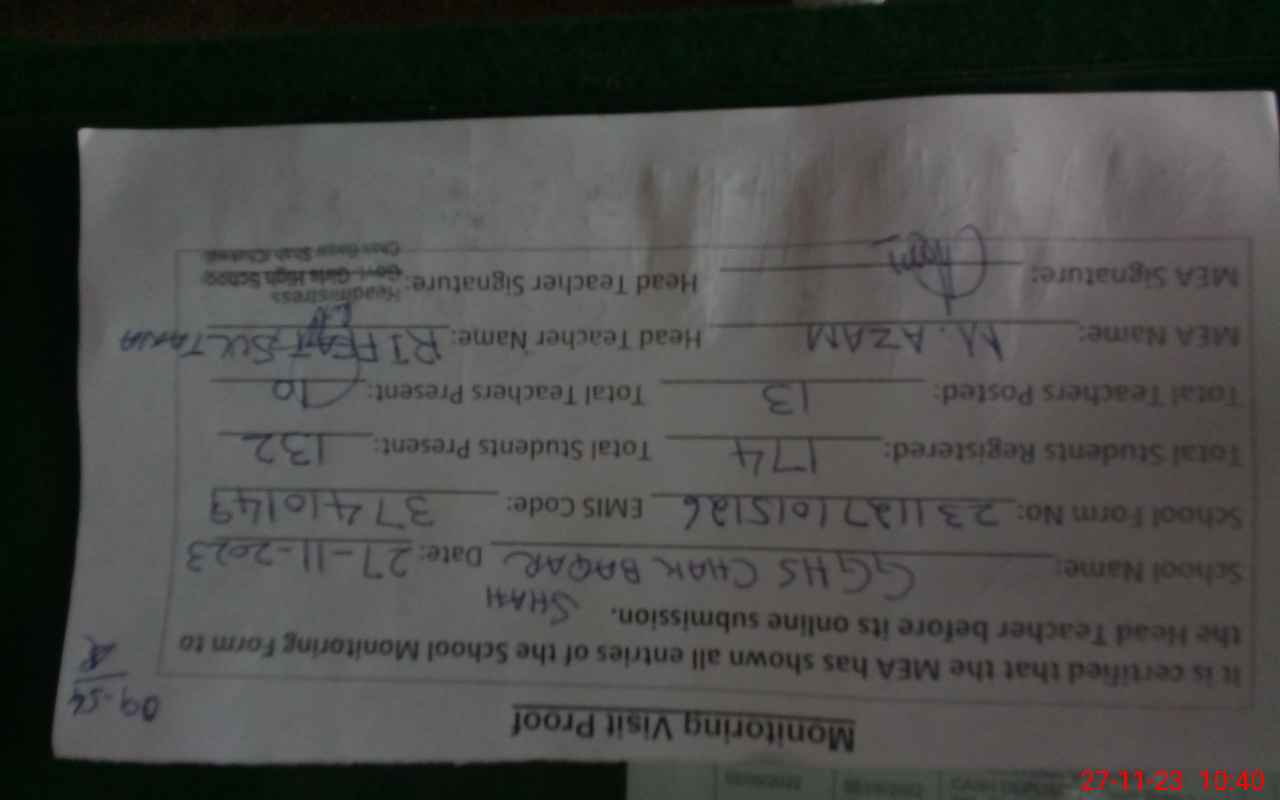 Monitoring Visit Proof
09-54
It is certified that the MEA has shown all entries of the School Monitoring Form to
the Head Teacher before its online submission.
School Name: GGHS CHAK BAQAR SHAH Date: 27-11-2023
School Form No: 2311271015126 EMIS Code: 37410149
Total Students Registered: 174 Total Students Present: 132
Total Teachers Posted: 13 Total Teachers Present: 10
MEA Name: M. AZAM Head Teacher Name: RIFFAT SULTANA
MEA Signature: Head Teacher Signature:
Headmistress
Govt. Girls High School
27-11-23 10:40